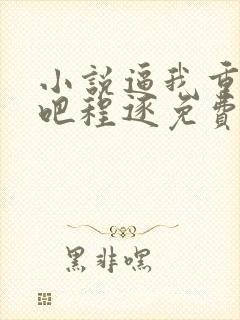 小説逼我重
吧程逐免費
黑非嘿